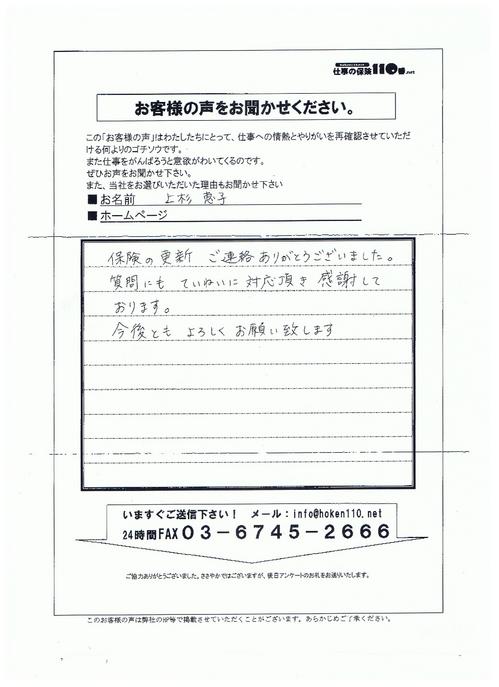 仕事の保険110番.net
お客様の声をお聞かせください。
この「お客様の声」はわたしたちにとって、仕事への情熱とやりがいを再確認させていただ
ける何よりのゴチソウです。
また仕事をがんばろうと意欲がわいてくるのです。
ぜひお声をお聞かせ下さい。
また、当社をお選びいただいた理由もお聞かせ下さい
■お名前 上杉 恵子
■ホームページ
保険の更新 ご連絡ありがとうございました。
質問にも ていねいに対応頂き 感謝して
おります。
今後とも よろしく お願い致します
いますぐご送信下さい！ メール：info@hoken110.net
24時間FAX03－6745－2666
ご協力ありがとうございました。ささやかではございますが、後日アンケートのお礼をお送りいたします。
このお客様の声は弊社のHP等で掲載させていただくことがございます。あらかじめご了承ください。